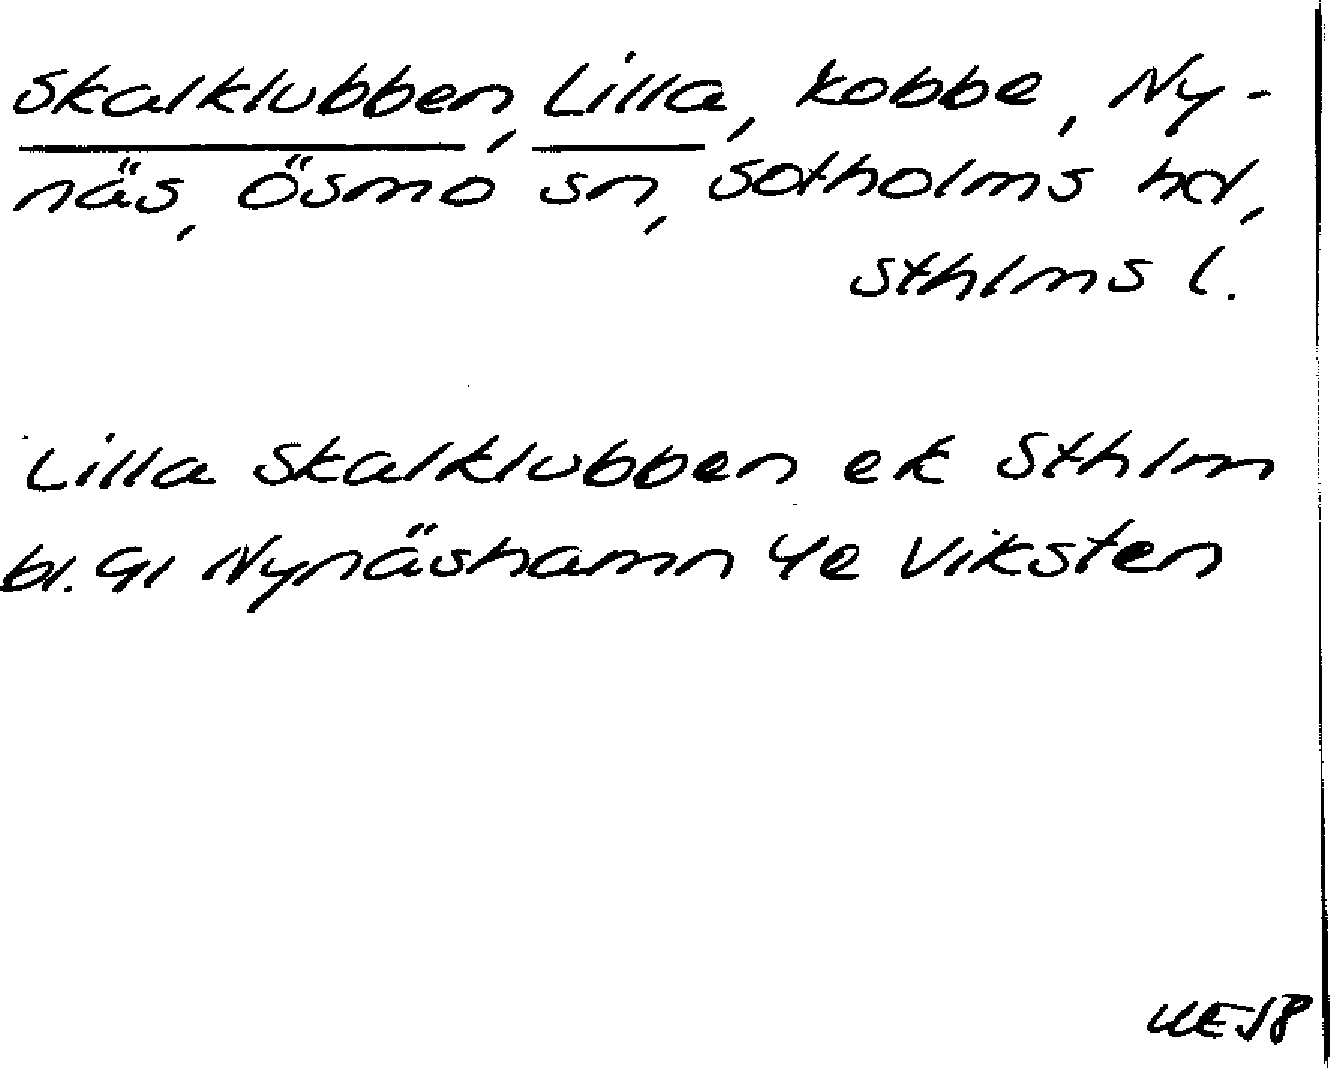 Skalklubben, Lilla, kobbe, Ny-
näs, Ösmo sn, Sotholms hd,
Sthlms l.
Lilla Skalklubben ek Sthlm
bl. 91 Nynäshamn 4e Viksten